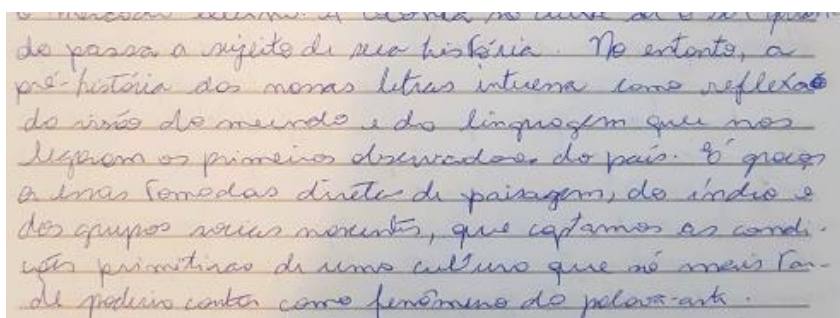 o mercado externo. A colônia só deixa de o ser quan-
do passa a sujeito de sua história. No entanto, a
pré-história das nossas letras interessa como reflexo
da visão do mundo e da linguagem que nos
legaram os primeiros observadores do país. É graças
a essas tomadas diretas de paisagem, do índio e
dos grupos sociais nascentes, que captamos as condi-
ções primitivas de uma cultura que só mais tar-
de poderia contar como fenômeno da palavra-arte.